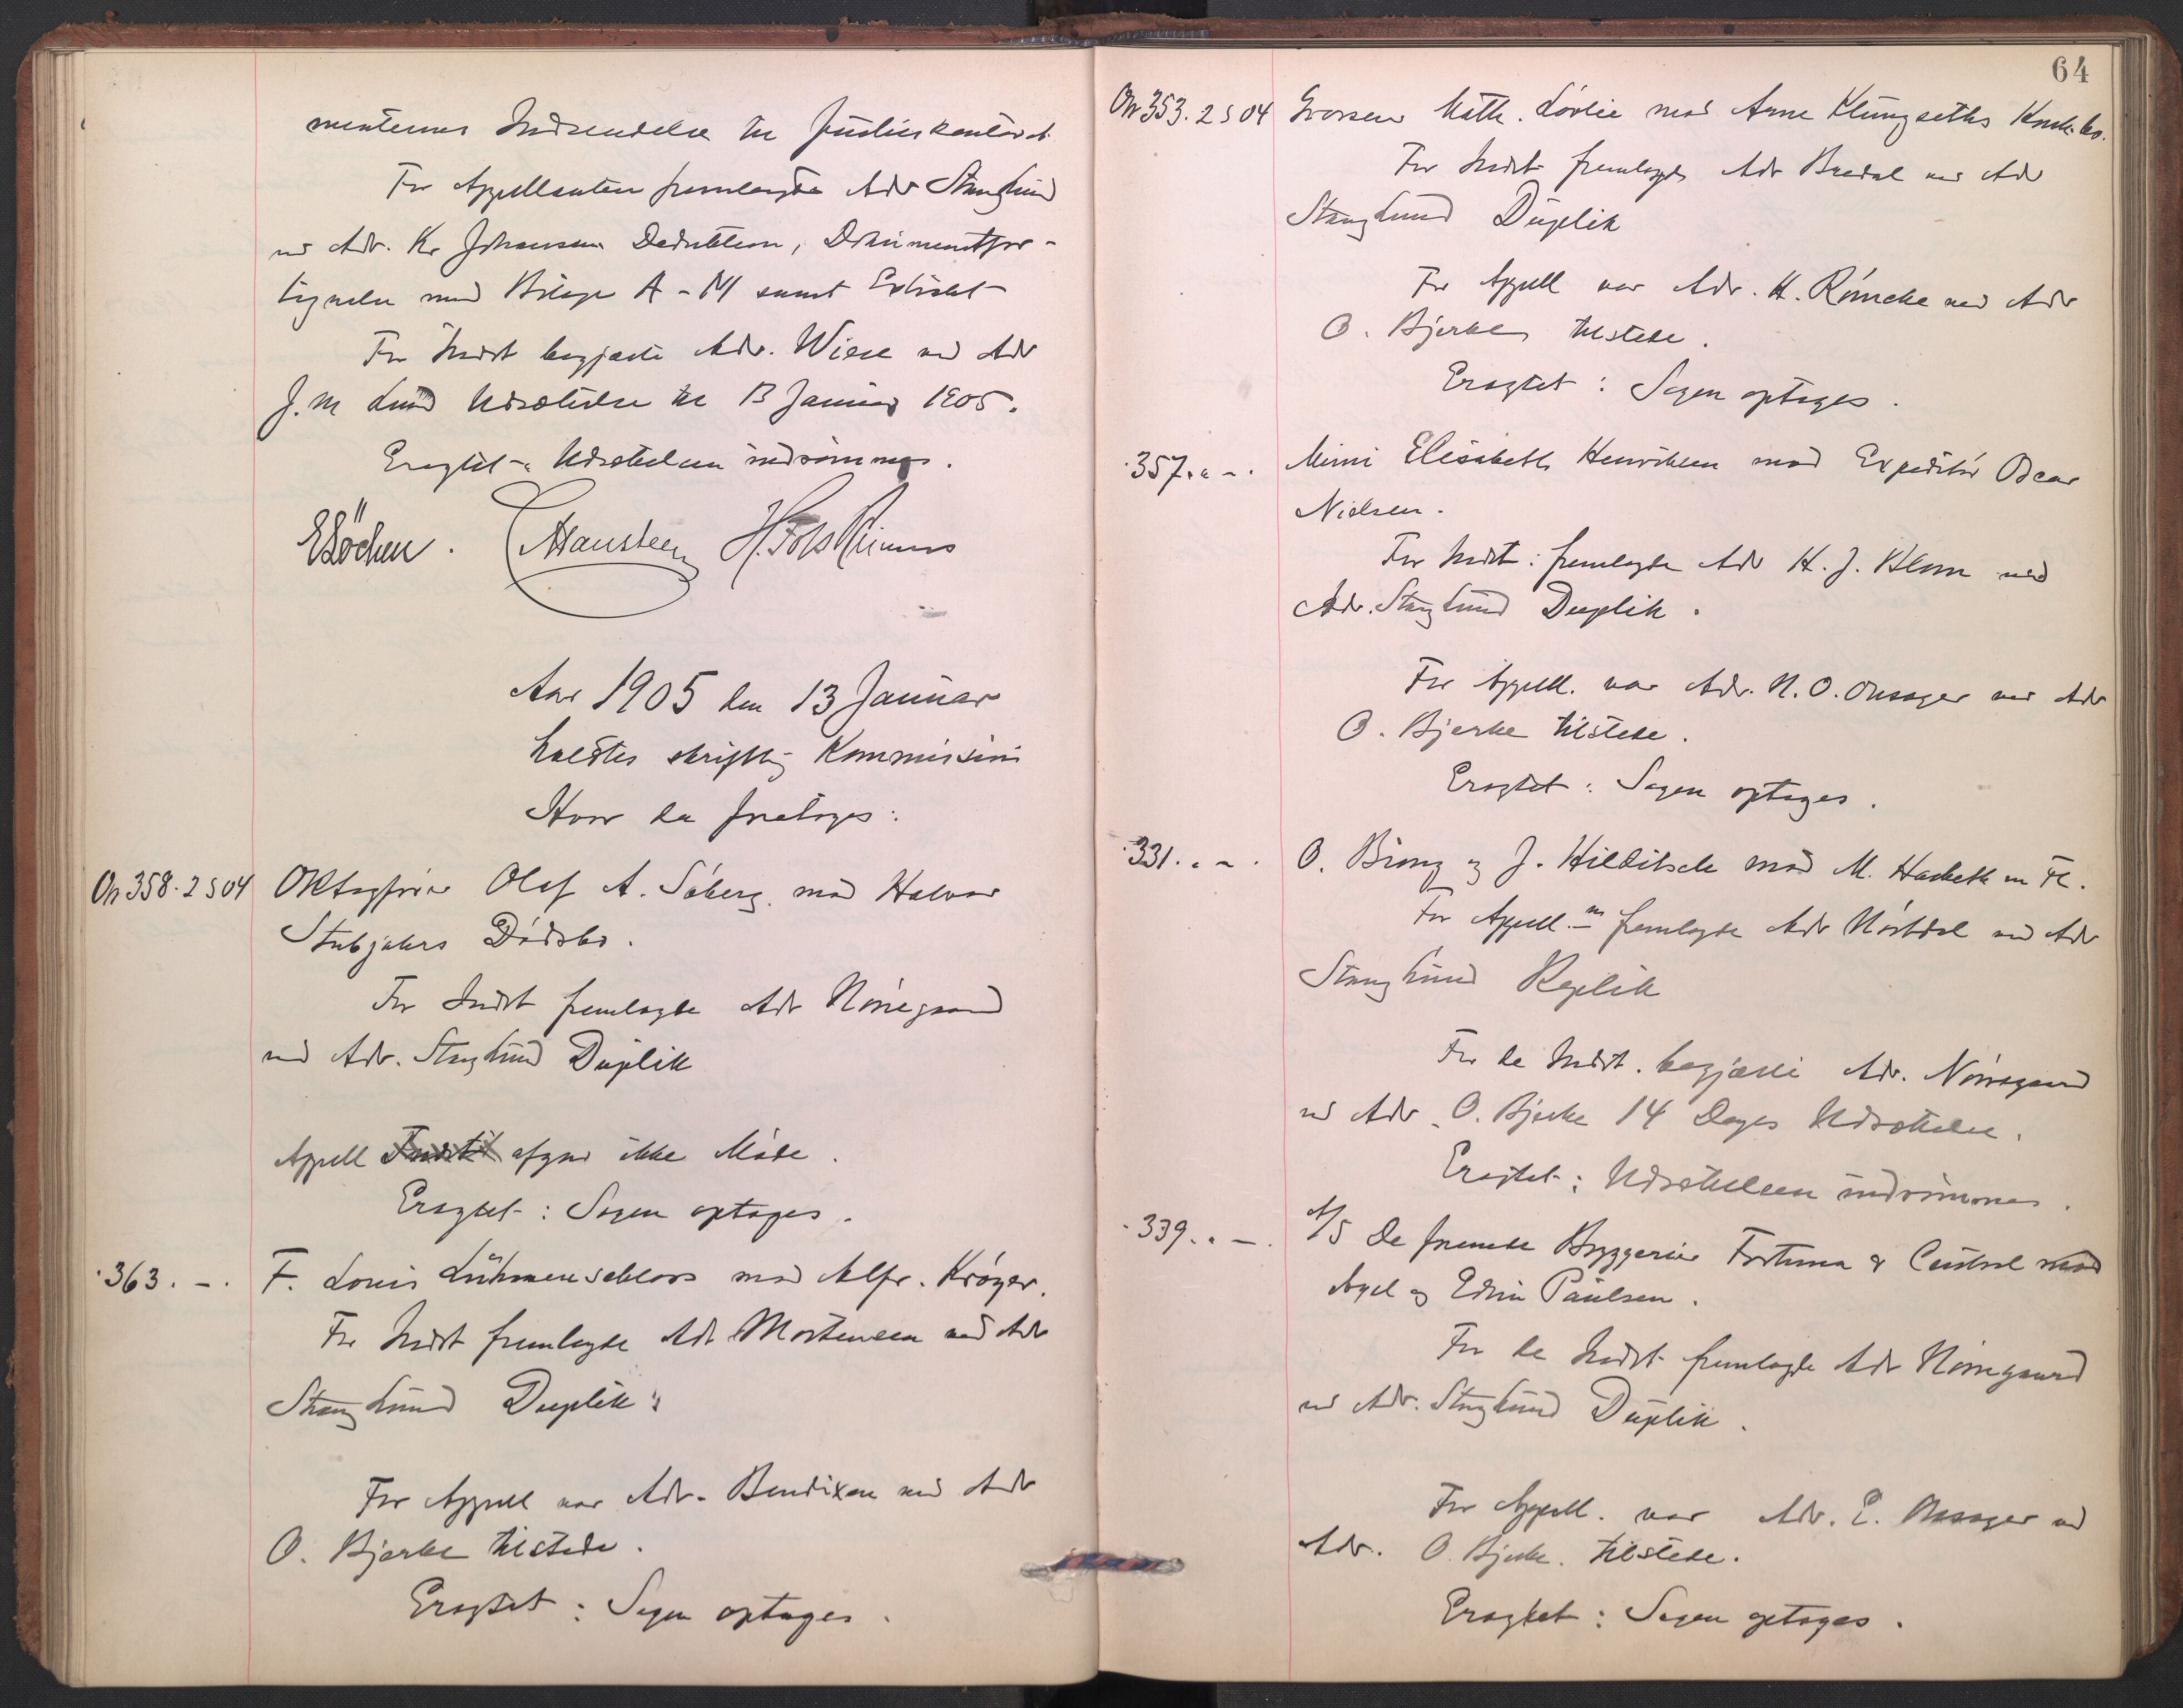 menternes Indsendelse til Justiskontoret.
For Appellanten fremlagde Adv Stang Lund
ved Adv. Kr Johansen Deduktion, Dokumentfor-
tegnelse med Bilage A - M samt Extrakt
For Indst begjærte Adv. Wiese ved Adv
J. M Lund Udsættelse til 13 Januar 1905.
Eragtet: Udsættelsen indrømmes.
ELöchen. Hansteen
Aar 1905 den 13 Januar
holdtes skriftlig Kommission
Hvor da foretoges:
On 358. 2 S 04 Olaf A. Söberg mod Halvor
Dødsbo.
For Indst fremlagde Adv Nörregaard
ved Adv. Stang Lund Duplik
Appell afgav ikke Møde.
Eragtet: Sagen optages.
· 363. - . F. Louis mod Alfr. Kröyer.
For Indst fremlagde Adv Mortensen ved Adv
Stang Lund Duplik.
For Appell var Adv. Bendixen ved Adv
O. Bjerke tilstede.
Eragtet: Sagen optages.
64
On 353. 2 S 04 Grosserer Math. Lövlie mod Arne Klungseths Konk. bo.
For Indst fremlagde Adv Bredal ved Adv
Stang Lund Duplik
For Appell var Adv. H. ved Adv
O. Bjerke tilstede.
Eragtet: Sagen optages.
· 357. " - . Mimi Elisabeth Henriksen mod Expeditør Oscar
Nielsen.
For Indst: fremlagde Adv H. J. Blom ved
Adv. Stang Lund Duplik.
For Appell. var Adv. N. O. Onsager ved Adv
O. Bjerke tilstede.
Eragtet: Sagen optages.
· 331. " - . O. og J. Hilditsch mod M. Hasbeth m Fl.
For Appell. fremlagde Adv ved Adv
Stang Lund Replik
For de Indst. begjærte Adv. Nörregaard
ved Adv. O. Bjerke 14 Dages Udsættelse.
Eragtet: Udsættelsen indrømmes.
· 339. " - . A/S De forenede Bryggerier Fortuna & Central mod
Axel og Edvin Paulsen.
For de Indst fremlagde Adv Nörregaard
ved Adv. Stang Lund Duplik.
For Appell. var Adv. E. Onsager ved
Adv. O. Bjerke. tilstede.
Eragtet: Sagen optages.